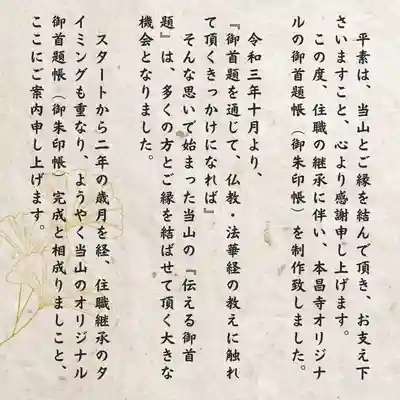 平素は、当山とご縁を結んで頂き、お支え下
さいますこと、心より感謝申し上げます。
この度、住職の継承に伴い、本昌寺オリジナ
ルの御首題帳（御朱印帳）を制作致しました。
令和三年十月より、
『御首題を通じて、仏教・法華経の教えに触れ
て頂くきっかけになれば』
そんな思いで始まった当山の『伝える御首
題』は、多くの方とご縁を結ばせて頂く大きな
機会となりました。
スタートから二年の歳月を経、住職継承のタ
イミングも重なり、ようやく当山のオリジナル
御首題帳（御朱印帳）完成と相成りましこと、
ここにご案内申し上げます。